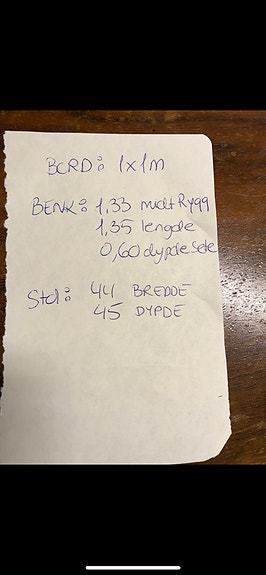 BORD: 1x1m
BENK: 1,33 midt Rygg
1,35 lengde
0,60 dypde Sete
Stol: 44 BREDDE
45 DYPDE